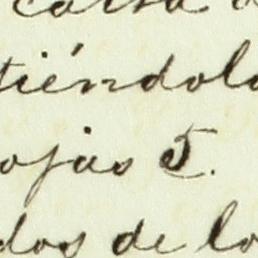 causa
tiéndola
ojas 5.
dos de lo